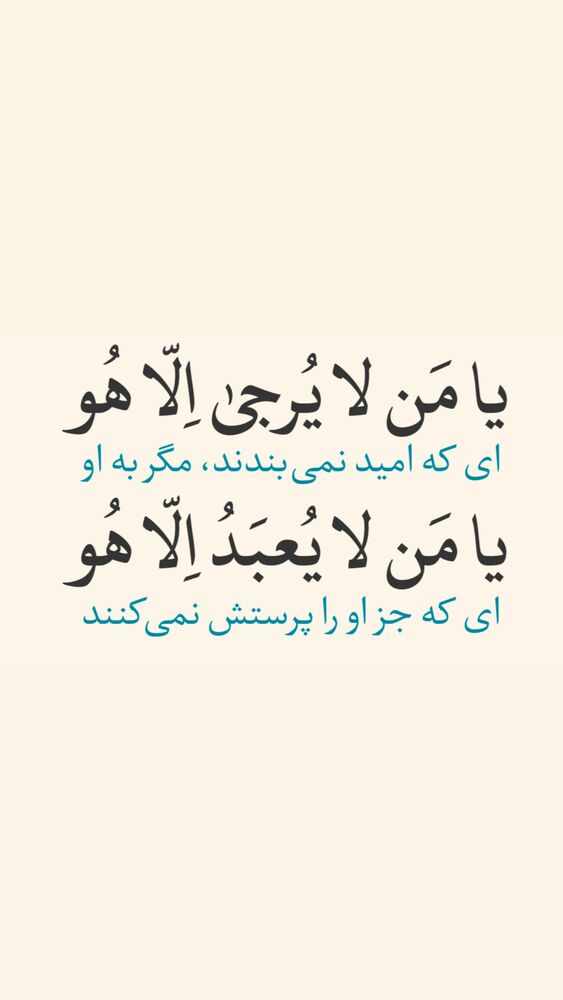 يا مَن لا يُرجىٰ اِلّا هُو
ای که امید نمی‌بندند، مگر به او
يا مَن لا يُعبَدُ اِلّا هُو
ای که جز او را پرستش نمی‌کنند